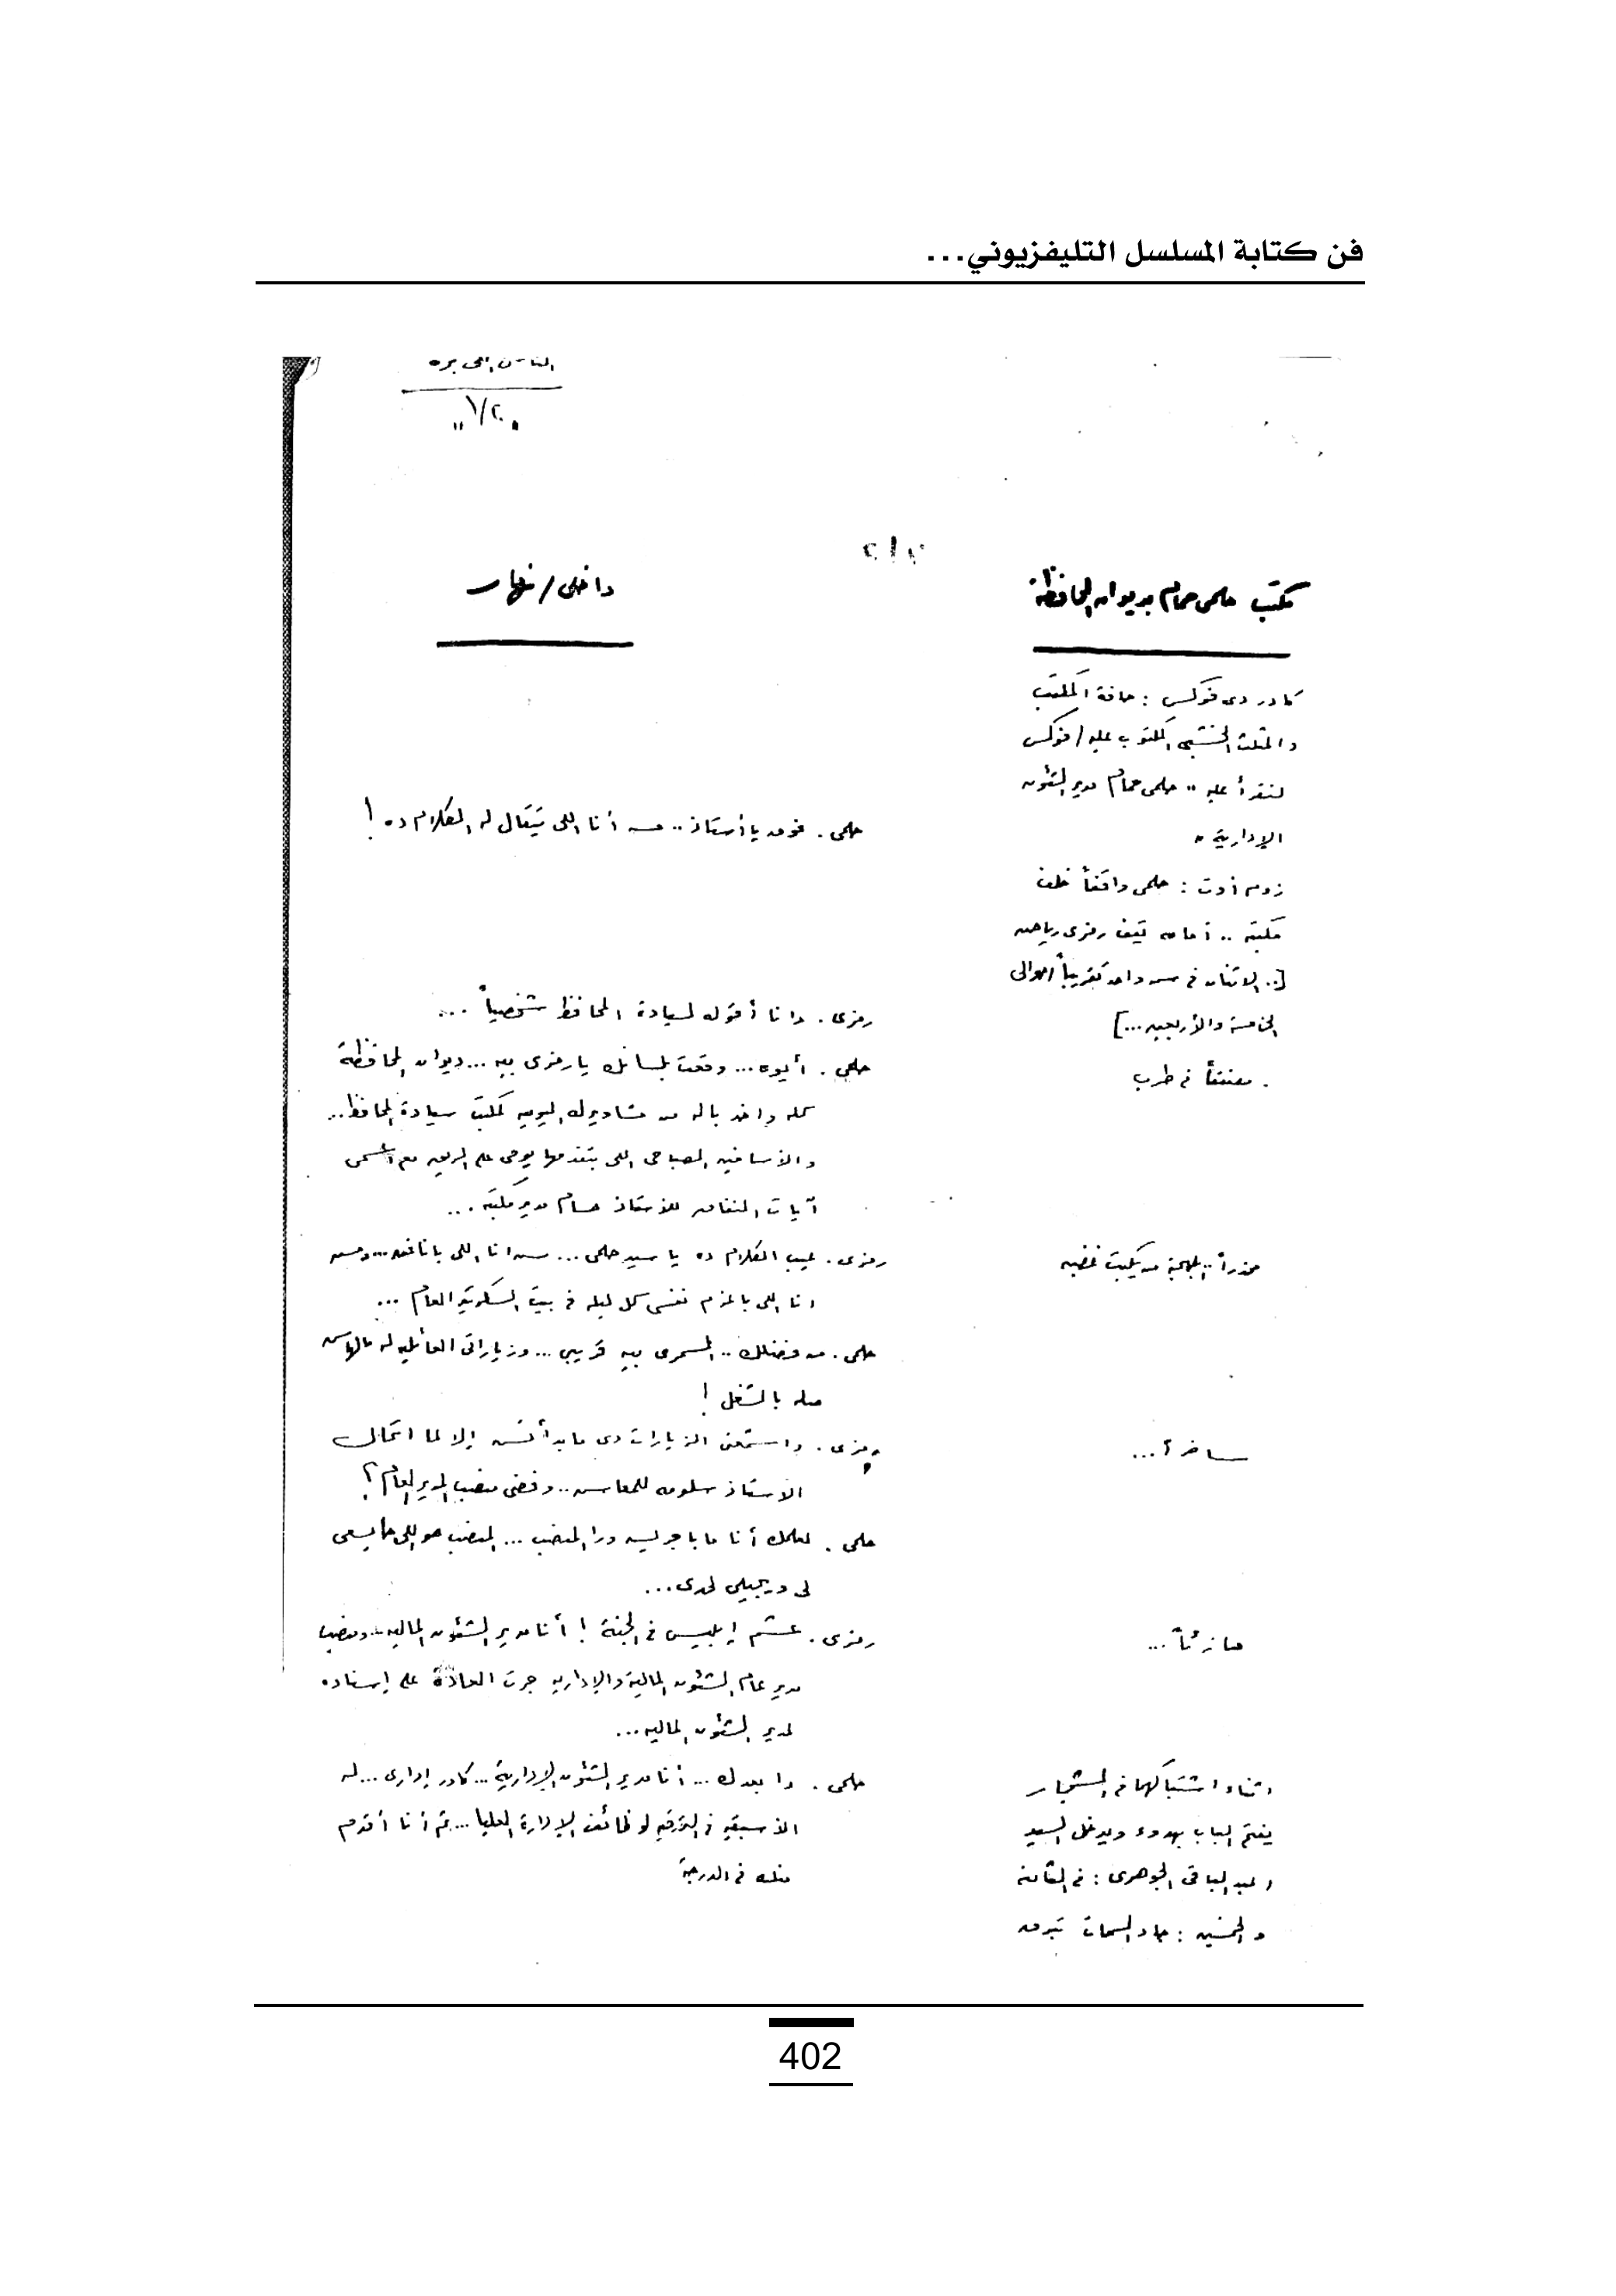 فن كتابة المسلسل التليفزيوني...
١/٢٠
مكتب حلمى حمام بديوان المحافظة
داخلى / نهار
كادر دى فوكس : حافة المكتب
والمثلث الخشبى المكتوب عليه / فوكس
لنقرأ عليه " حلمى حمام مدير الشئون
الإدارية "
زووم أوت : حلمى واقفاً خلف
مكتبه .. أمامه يقف رمزى رياض
[.. الاتنان فى سن واحد تقريباً / حوالى
الخامسة والأربعين ...]
حلمى . فوق يا أستاذ .. مش أنا اللى يتقال له الكلام ده !
رمزى . دا نا أقوله لسيادة المحافظ شخصياً ...
حلمى . أيوه ... وقعت بلسانك يا رمزى بيه ... ديوان المحافظة
كله واخد باله من مشاويرك اليوميه لمكتب سيادة المحافظ ..
والأسافين الصباحى اللى بتقدمها يومى على الريق مع أسمى
آيات النفاق للأستاذ حسام مدير مكتبه ...
محذراً .. بلهجة من يكبت غضبه
رمزى . عيب الكلام ده يا سيد حلمى ... مش انا اللى بانافق ... ومش
انا اللى بالزم نفسى كل ليله فى بيت السكرتير العام ...
حلمى . من فضلك .. المسمرى بيه قريبى ... وزياراتى العائليه له مالهاش
صله بالشغل !
ساخراً ...
رمزى . واشمعنى الزيارات دى ما بدأتش إلا لما اتحال
الأستاذ سلومه للمعاش .. وفضى منصب المدير العام ؟
حلمى . لعلمك أنا ما باجريش ورا المنصب ... المنصب هو اللى حايسعى
لى ويجيلى لحدى ...
هازئاً ...
رمزى . عشم إبليس فى الجنة ! أنا مدير الشئون الماليه .. ومنصب
مدير عام الشئون المالية والإداريه جرت العادة على إسناده
لمدير الشئون الماليه ...
أثناء اشتباكهما فى الشجار
يفتح الباب بهدوء ويدخل السيد
/ عبد الباقى الجوهرى : فى الثامنة
والخمسين : حاد السمات تبرق
حلمى . دا بعدك ... أنا مدير الشئون الإدارية ... كادر إدارى ... له
الأسبقيه فى الترقيه لوظائف الإدارة العليا ... ثم أنا أقدم
منك فى الدرجة
402